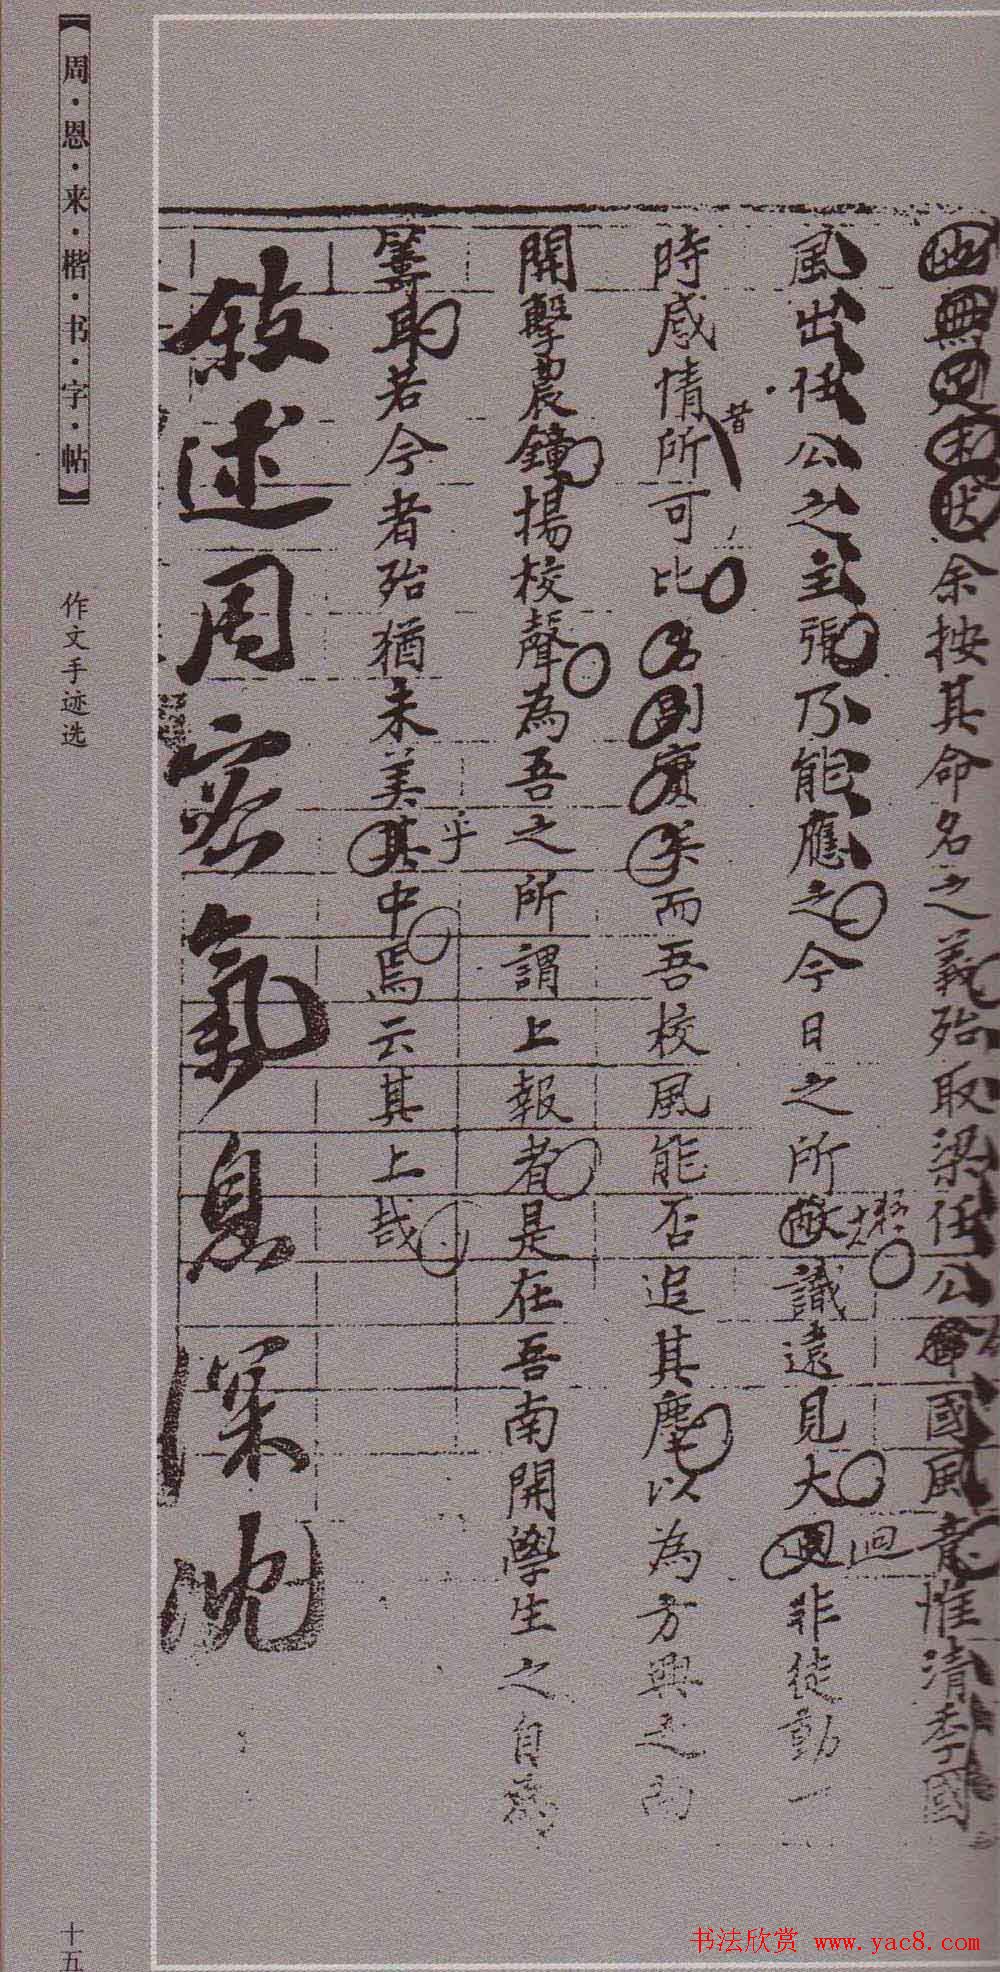 無
余按其命名之義殆取梁任公
國風意惟清季國
風出任公之主張乃能應之今日之所
識遠見大
迴
非徒動一
時感情所可比
昔
實美而吾校風能否追其塵以為方興之
開擊晨鐘揚校聲為吾之所謂上報者是在吾南開學生之自為
籌耶若今者殆猶未美其中焉云其上哉
乎
敍述周密氣息深沈
【周·恩·来·楷·书·字·帖】
作文手迹选
十五
书法欣赏 www.yac8.com